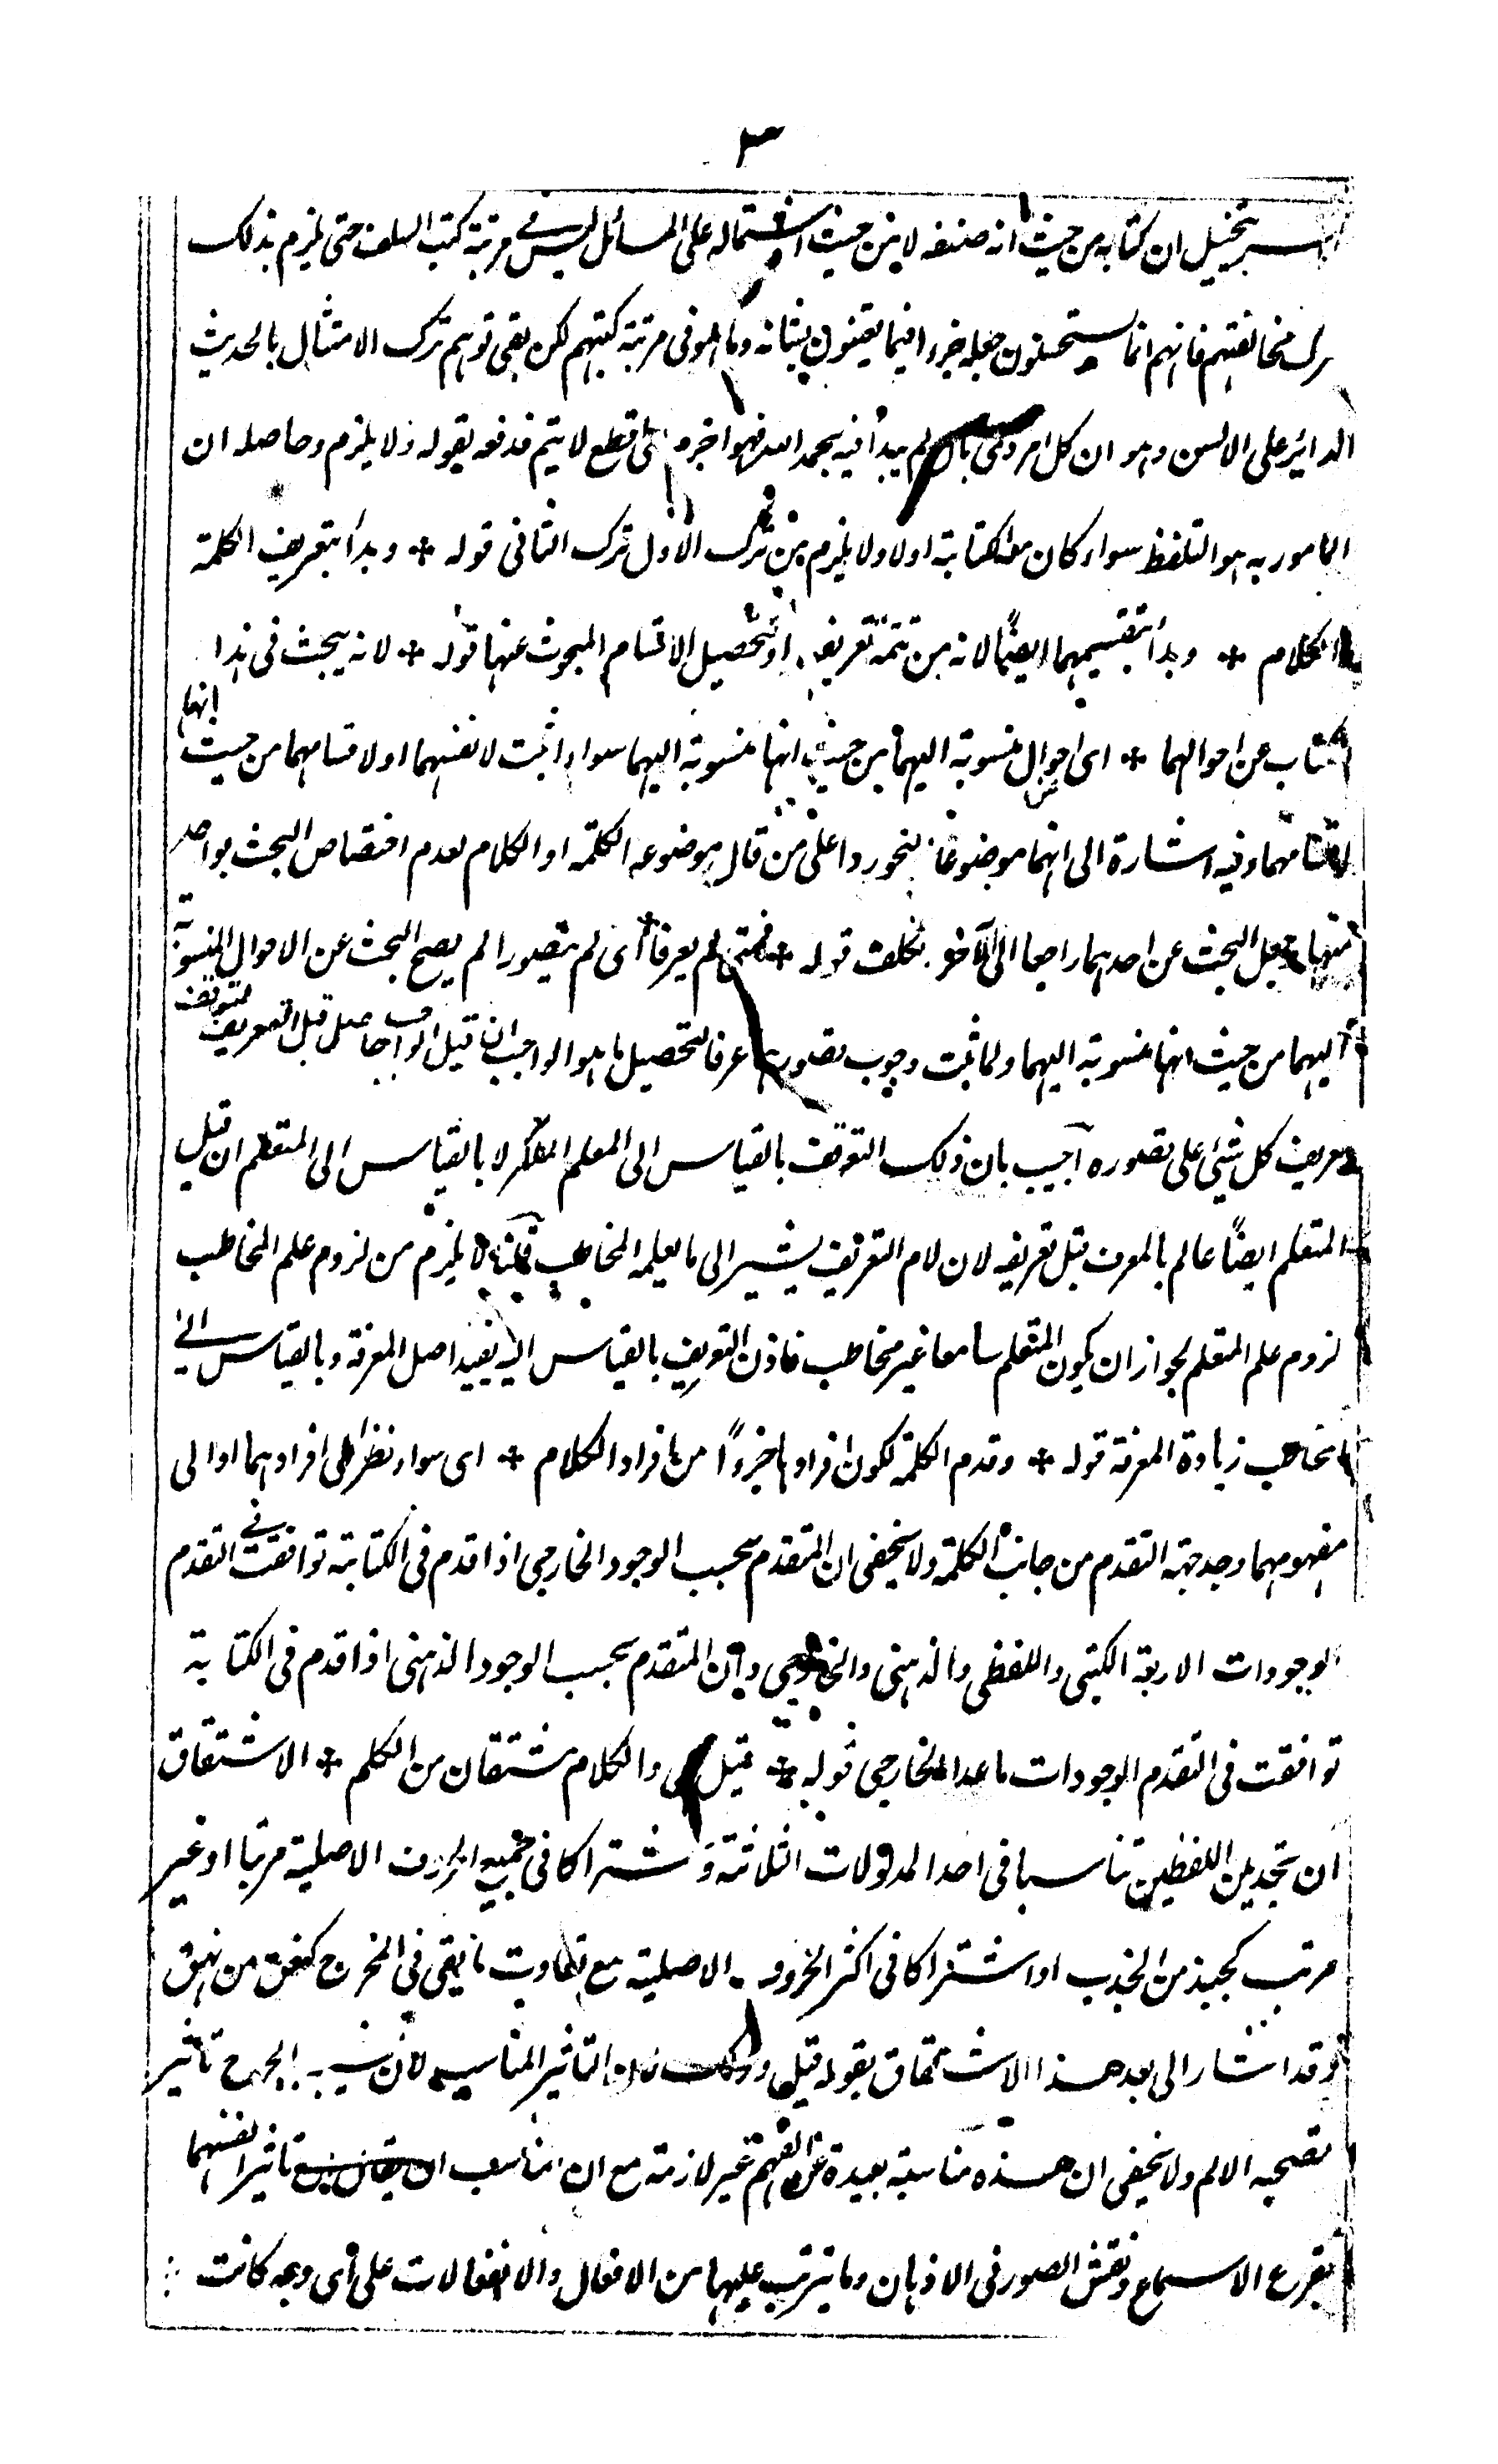 ٣
بتخييل ان كتابه من حيث انه صنفه لا من حيث اشتماله على المسائل ليس فى مرتبة كتب السلف حتى يلزم بذلك
ترك مخالفتهم فانهم انما يستحسنون جعله جزءا فيما يعتنون بشانه وما هو فى مرتبة كتبهم لكن بقى توهم ترك الامتثال بالحديث
الدائر على الالسن وهو ان كل امر ذى بال لم يبدأ فيه بحمد الله فهو اجزم اى اقطع لا يتم فدفعه بقوله ولا يلزم وحاصله ان
المامور به هو التلفظ سواء كان معه الكتابة اولا ولا يلزم من ترك الاول ترك الثانى قوله * وبدأ بتعريف الكلمة
والكلام * وبدأ بتقسيمهما ايضًا لانه من تتمة تعريف او لتحصيل الاقسام المبحوث عنها قوله * لانه يبحث فى هذا
الكتاب عن احوالهما * اى احوال منسوبة اليهما من حيث انها منسوبة اليهما سواء اثبت لانفسهما او لاقسامهما من حيث انها
اقسامهما وفيه اشارة الى انهما موضوعا النحو ردا على من قال موضوعه الكلمة او الكلام لعدم اختصاص البحث بواحد
منهما وجعل البحث عن احدهما راجعا الى الآخر تكلف قوله * فمتى لم يعرفا اى لم يتصورا لم يصح البحث عن الاحوال المنسوبة
اليهما من حيث انها منسوبة اليهما ولما ثبت وجوب تصورهما عرفا لتحصيل ما هو الواجب ان قيل الواجب حاصل قبل التعريف لتوقف
تعريف كل شئ على تصوره اجيب بان ذلك التوقف بالقياس الى المعلم المفكر لا بالقياس الى المتعلم ان قيل
المتعلم ايضًا عالم بالمعرف قبل تعريفه لان لام التعريف يشير الى ما يعلمه المخاطب قلنا لا يلزم من لزوم علم المخاطب
لزوم علم المتعلم لجواز ان يكون المتعلم سامعا غير مخاطب فاذن التعريف بالقياس اليه يفيد اصل المعرفة وبالقياس الى
المخاطب زيادة المعرفة قوله * وقدم الكلمة لكون افرادها جزءًا من افراد الكلام * اى سواء نظر الى افرادهما او الى
مفهومهما وجد جهة التقدم من جانب الكلمة ولا يخفى ان المتقدم بحسب الوجود الخارجى اذا قدم فى الكتابة توافقت فى التقدم
الوجودات الاربعة الكتبى واللفظى والذهنى والخارجى وان المتقدم بحسب الوجود الذهنى اذا قدم فى الكتابة
توافقت فى التقدم الوجودات ما عدا الخارجى قوله * قيل هى والكلام مشتقان من الكلم * الاشتقاق
ان تجد بين اللفظين تناسبا فى احد المدلولات الثلاثة واشتراكا فى جميع الحروف الاصلية مرتبا او غير
مرتب كجبذ من الجذب او اشتراكا فى اكثر الحروف الاصلية مع تفاوت ما بقى فى المخرج كنعق من النهق
وقد اشار الى بعد هذا الاشتقاق بقوله قيل وذلك لان التاثير المناسب لان يشبه به الجرح تاثير
مصحبه الالم ولا يخفى ان هذه مناسبة بعيدة عن الفهم غير لازمة مع ان المناسب ان يقال تاثير انفسهما
بقرع الاسماع ونقش الصور فى الاذهان وما يترتب عليها من الافعال والانفعالات على اى وجه كانت